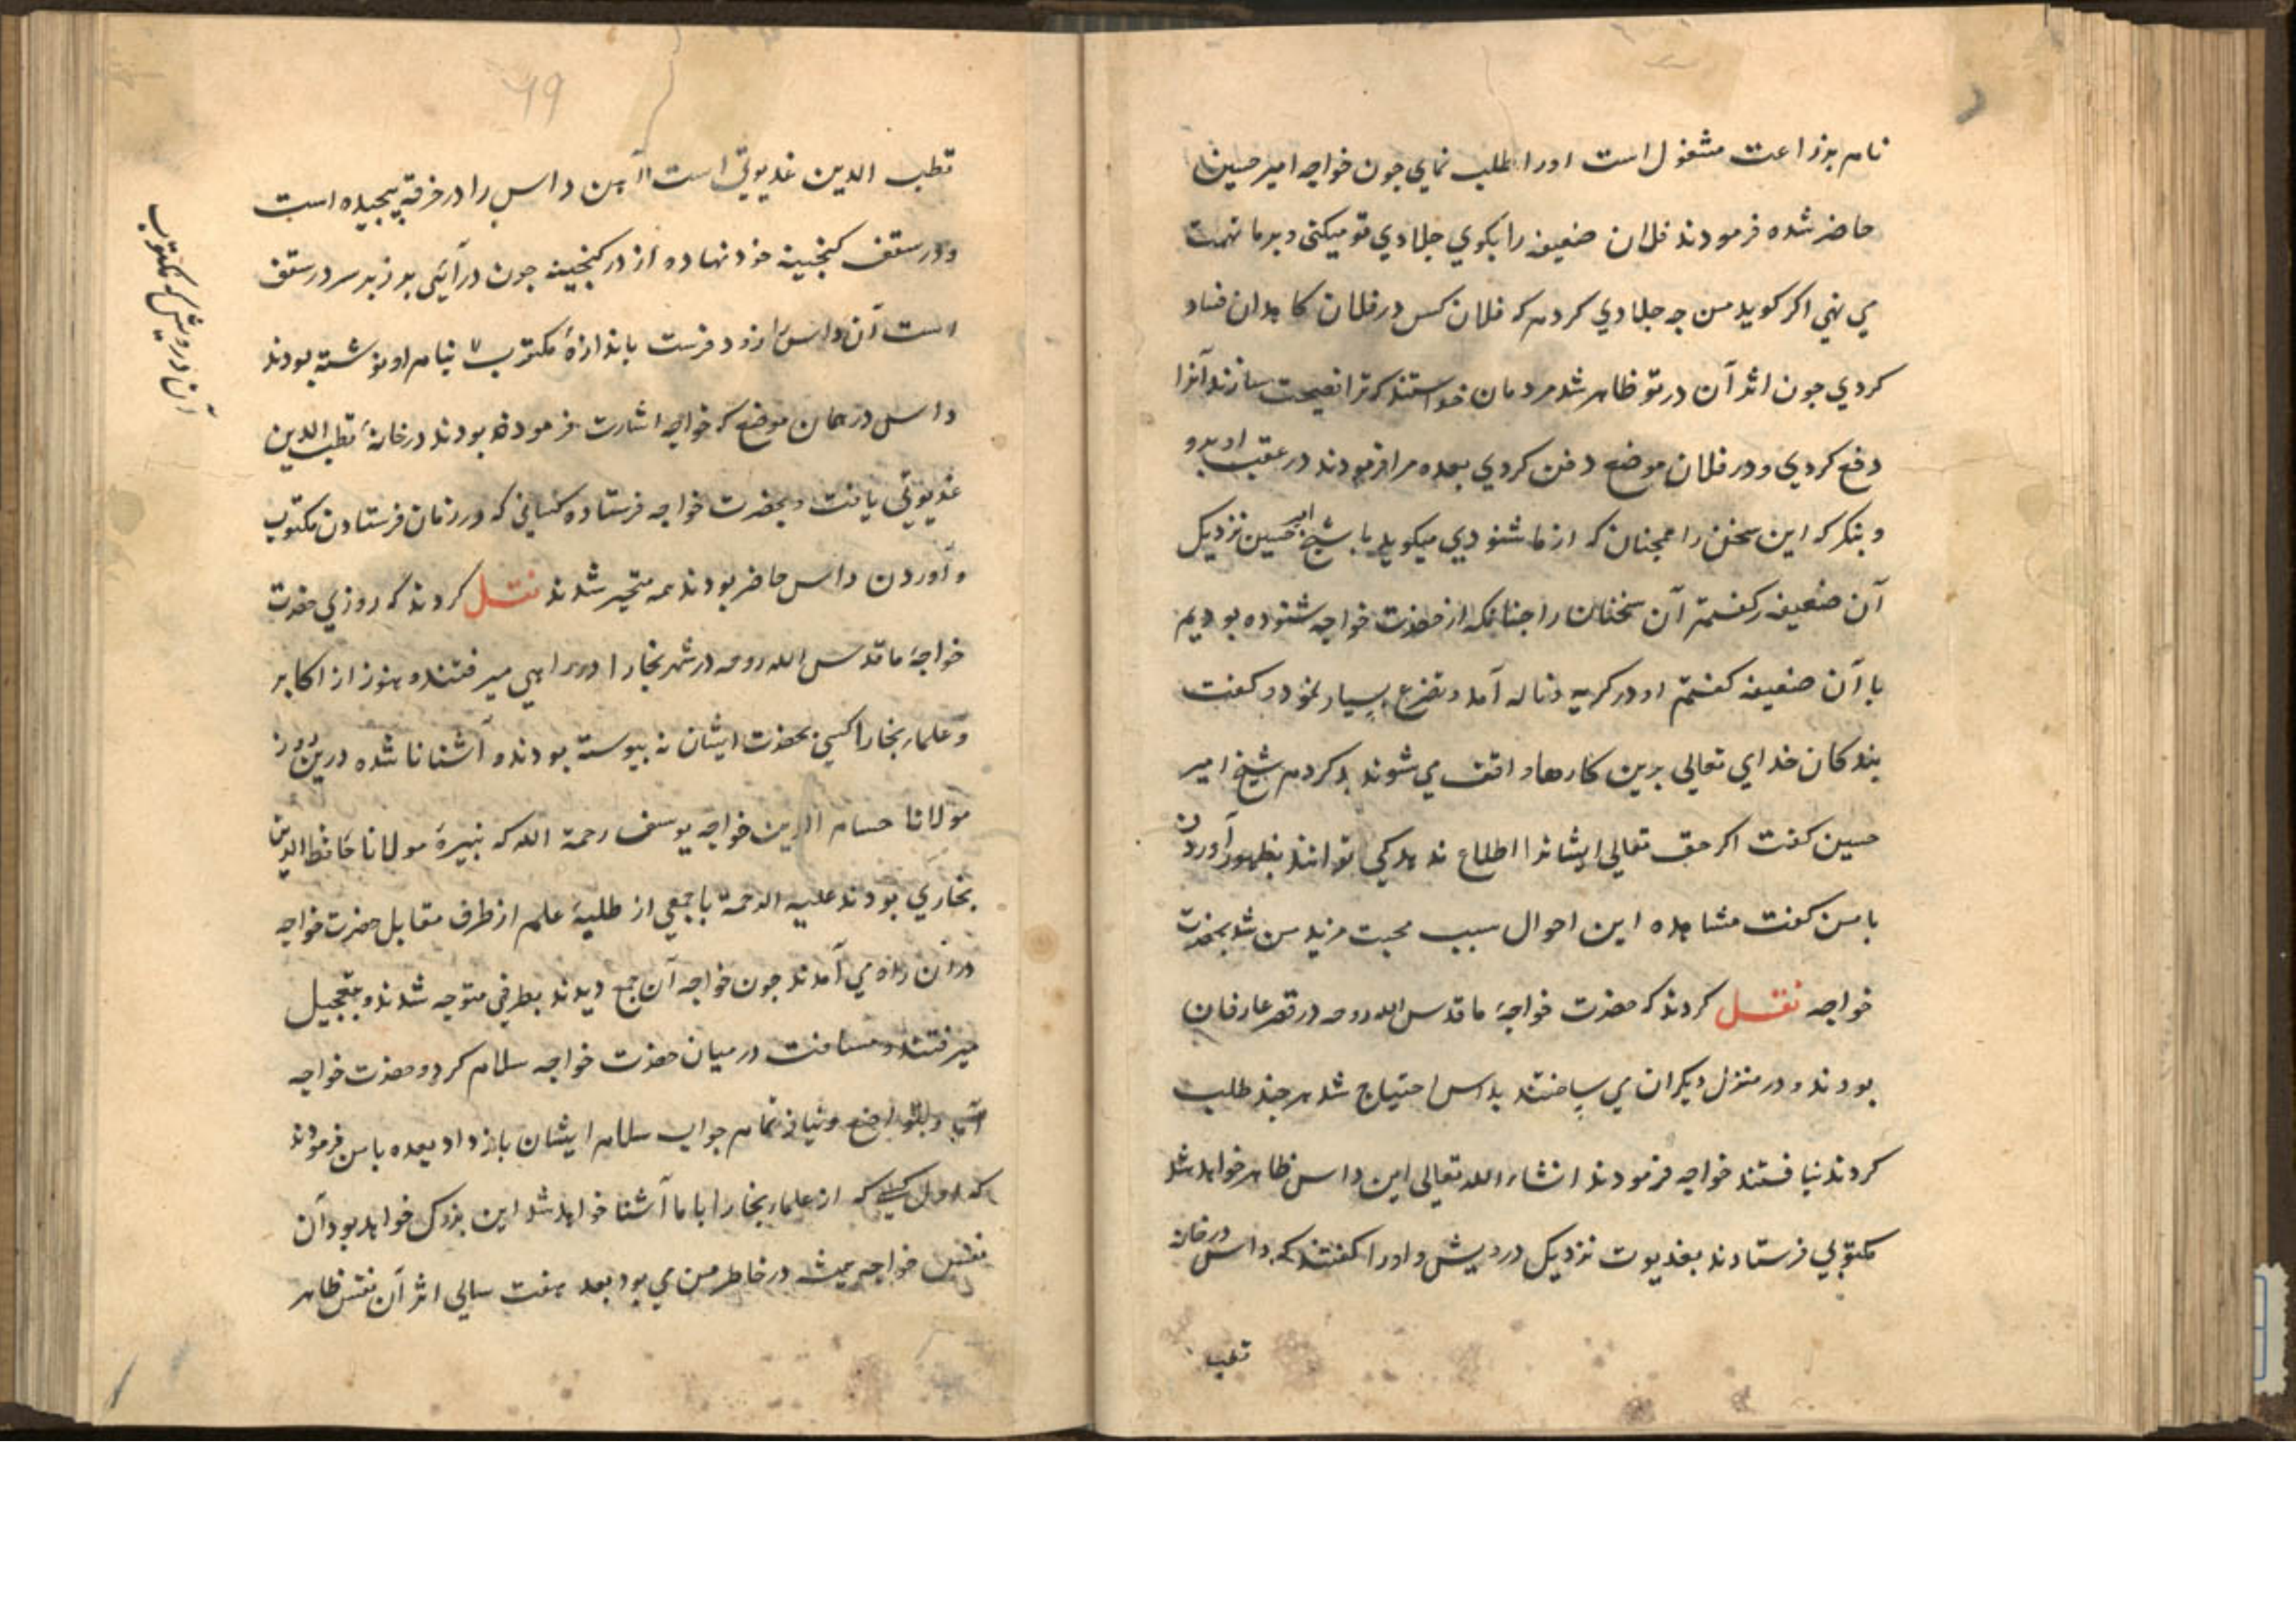 نام بزراعت مشغول است او را طلب نمای جون خواجه امیر حسین
حاضر شده فرمودند فلان ضعیفه را بکوی جلادی تو میکنی و بر ما تهمت
می نهی اکر کوید من جه جلادی کردم که فلان کس در فلان کاهدان فساد
کردی جون اثر آن در تو ظاهر شد مردمان خواستند که ترا نصیحت سازند آنرا
دفع کردی و در فلان موضع دفن کردی بعده مرا فرمودند در عقب او برو
و بنکر که این سخن را همجنان که از ما شنودی میکوید با شیخ امیر حسین نزدیک
آن ضعیفه رفتم آن سخنان را جنانکه از حضرت خواجه شنوده بودیم
با آن ضعیفه کفتم او در کریه و ناله آمد و تضرع بسیار نمود و کفت
بندکان خدای تعالی برین کارها واقف می شوند بد کردم شیخ امیر
حسین کفت اکر حق تعالی ایشانرا اطلاع ندهد کی توانند بظهور آوردن
با من کفت مشاهده این احوال سبب محبت مزید من شد بحضرت
خواجه نقل کردند که حضرت خواجهٔ ما قدس الله روحه در قصر عارفان
بودند و در منزل دیکران می ساختند بداس احتیاج شد هر جند طلب
کردند نیافتند خواجه فرمودند انشاء الله تعالی این داس ظاهر خواهد شد
مکتوبی فرستادند بغدیوت نزدیک درویش و او را کفتند که داس در خانه
قطب
69
قطب الدین غدیوتی است آن داس را در خرقه پیجیده است
و در سقف کنجینه خود نهاده از در کنجینه جون در آیی بر زبر سر در سقف
است آن داس را زود فرست باندازهٔ مکتوب بنام او نوشته بودند
آن درویش که مکتوب
داس در همان موضع که خواجه اشارت فرموده بودند در خانهٔ قطب الدین
غدیوتی یافت و بحضرت خواجه فرستاده کسانی که در زمان فرستادن مکتوب
و آوردن داس حاضر بودند همه متحیر شدند نقل کردند که روزی حضرت
خواجهٔ ما قدس الله روحه در شهر بخارا در راهی میرفتند و هنوز از اکابر
و علماء بخارا کسی بحضرت ایشان نه پیوسته بودند و آشنا نا شده درین روز
مولانا حسام الدین خواجه یوسف رحمة الله که نبیرهٔ مولانا حافظ الدین
بخاری بودند علیه الرحمة با جمعی از طلبهٔ علم از طرف مقابل حضرت خواجه
در آن راه می آمدند جون خواجه آن جمع دیدند بطرفی متوجه شدند و بتعجیل
میرفتند و مسافت در میان حضرت خواجه سلام کرد و حضرت خواجه
و بتواضع و نیاز تمام جواب سلام ایشان باز داد بعده با من فرمودند
که اول کسی که از علماء بخارا با ما آشنا خواهد شد این بزرک خواهد بود آن
نفس خواجه همیشه در خاطر من می بود بعد هفت سالی اثر آن نفس ظاهر